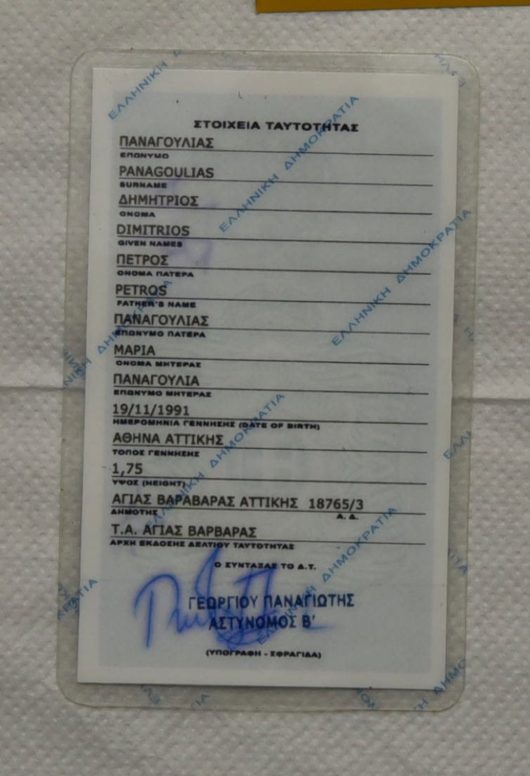 ΣΤΟΙΧΕΙΑ ΤΑΥΤΟΤΗΤΑΣ
ΠΑΝΑΓΟΥΛΙΑΣ
ΕΠΩΝΥΜΟ
PANAGOULIAS
SURNAME
ΔΗΜΗΤΡΙΟΣ
ΟΝΟΜΑ
DIMITRIOS
GIVEN NAMES
ΠΕΤΡΟΣ
ΟΝΟΜΑ ΠΑΤΕΡΑ
PETROS
FATHER'S NAME
ΠΑΝΑΓΟΥΛΙΑΣ
ΕΠΩΝΥΜΟ ΠΑΤΕΡΑ
ΜΑΡΙΑ
ΟΝΟΜΑ ΜΗΤΕΡΑΣ
ΠΑΝΑΓΟΥΛΙΑ
ΕΠΩΝΥΜΟ ΜΗΤΕΡΑΣ
19/11/1991
ΗΜΕΡΟΜΗΝΙΑ ΓΕΝΝΗΣΗΣ (DATE OF BIRTH)
ΑΘΗΝΑ ΑΤΤΙΚΗΣ
ΤΟΠΟΣ ΓΕΝΝΗΣΗΣ
1,75
ΥΨΟΣ (HEIGHT)
ΑΓΙΑΣ ΒΑΡΑΒΑΡΑΣ ΑΤΤΙΚΗΣ 18765/3
ΔΗΜΟΤΗΣ Α. Δ.
Τ.Α. ΑΓΙΑΣ ΒΑΡΒΑΡΑΣ
ΑΡΧΗ ΕΚΔΟΣΗΣ ΔΕΛΤΙΟΥ ΤΑΥΤΟΤΗΤΑΣ
Ο ΣΥΝΤΑΞΑΣ ΤΟ Δ.Τ.
ΓΕΩΡΓΙΟΥ ΠΑΝΑΓΙΩΤΗΣ
ΑΣΤΥΝΟΜΟΣ Β'
(ΥΠΟΓΡΑΦΗ - ΣΦΡΑΓΙΔΑ)
ΕΛΛΗΝΙΚΗ ΔΗΜΟΚΡΑΤΙΑ
ΕΛΛΗΝΙΚΗ ΔΗΜΟΚΡΑΤΙΑ